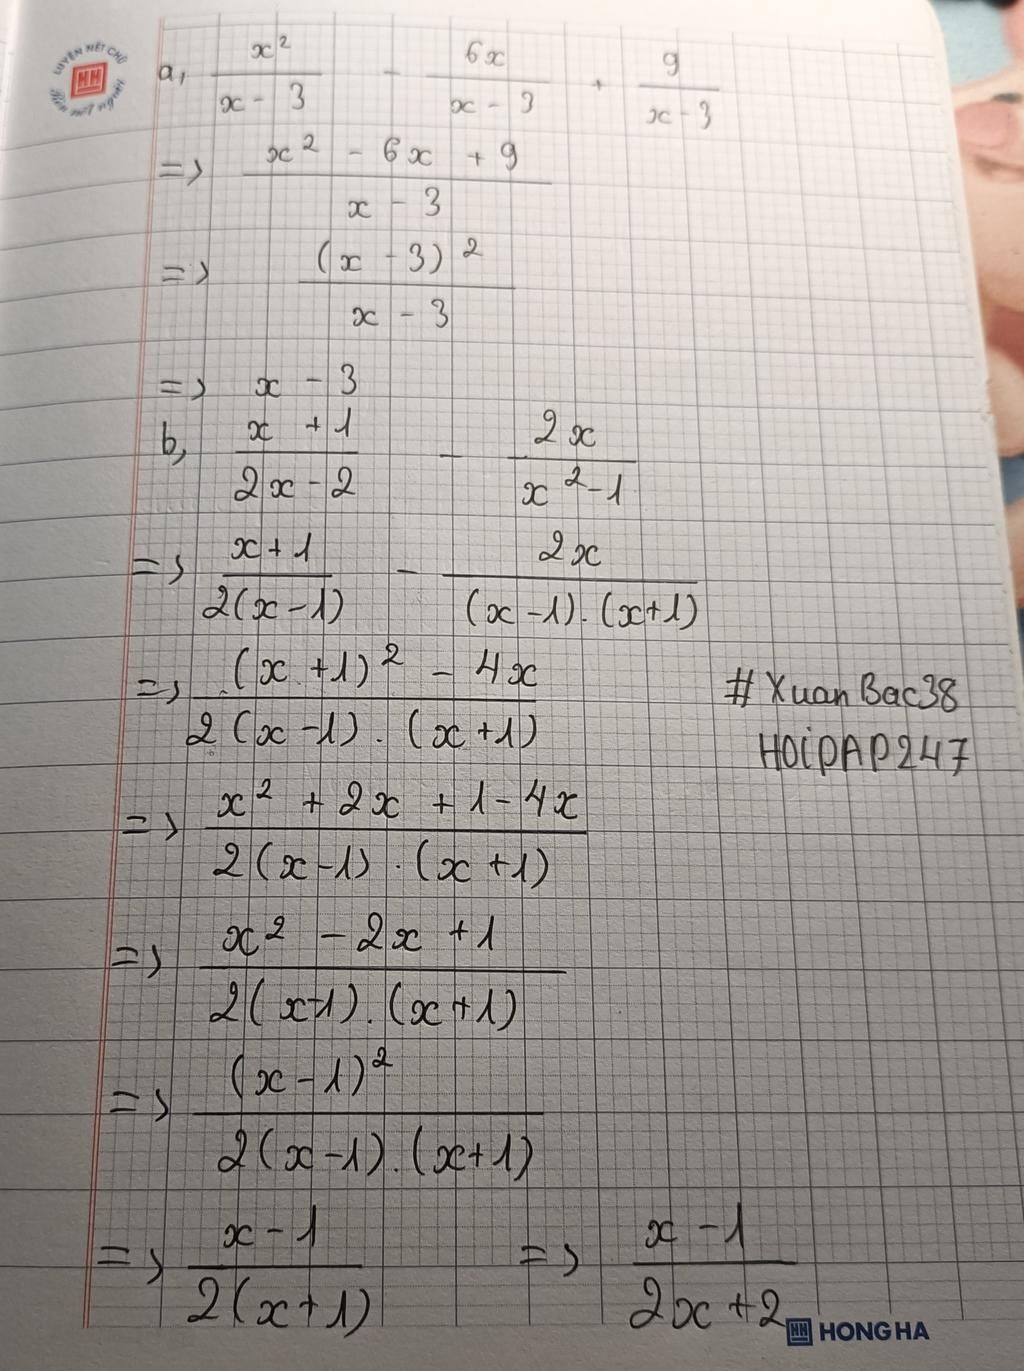 LUYỆN NÉT CHỮ
HH
Rèn nết người
a, x² / (x - 3) - 6x / (x - 3) + 9 / (x - 3)
=> (x² - 6x + 9) / (x - 3)
=> (x - 3)² / (x - 3)
=> x - 3
b, (x + 1) / (2x - 2) - 2x / (x² - 1)
=> (x + 1) / 2(x - 1) - 2x / (x - 1).(x + 1)
=> ((x + 1)² - 4x) / 2(x - 1).(x + 1)
# XuanBac38
HOiDAP247
=> (x² + 2x + 1 - 4x) / 2(x - 1).(x + 1)
=> (x² - 2x + 1) / 2(x - 1).(x + 1)
=> (x - 1)² / 2(x - 1).(x + 1)
=> (x - 1) / 2(x + 1) => (x - 1) / (2x + 2)
HH HONG HA